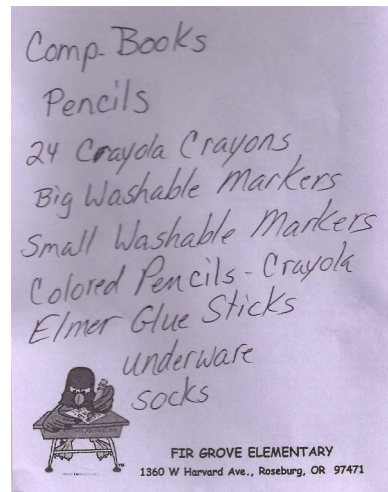 Comp. Books
Pencils
24 Crayola Crayons
Big Washable Markers
Small Washable Markers
Colored Pencils - Crayola
Elmer Glue Sticks
underware
socks
FIR GROVE ELEMENTARY
1360 W Harvard Ave., Roseburg, OR 97471